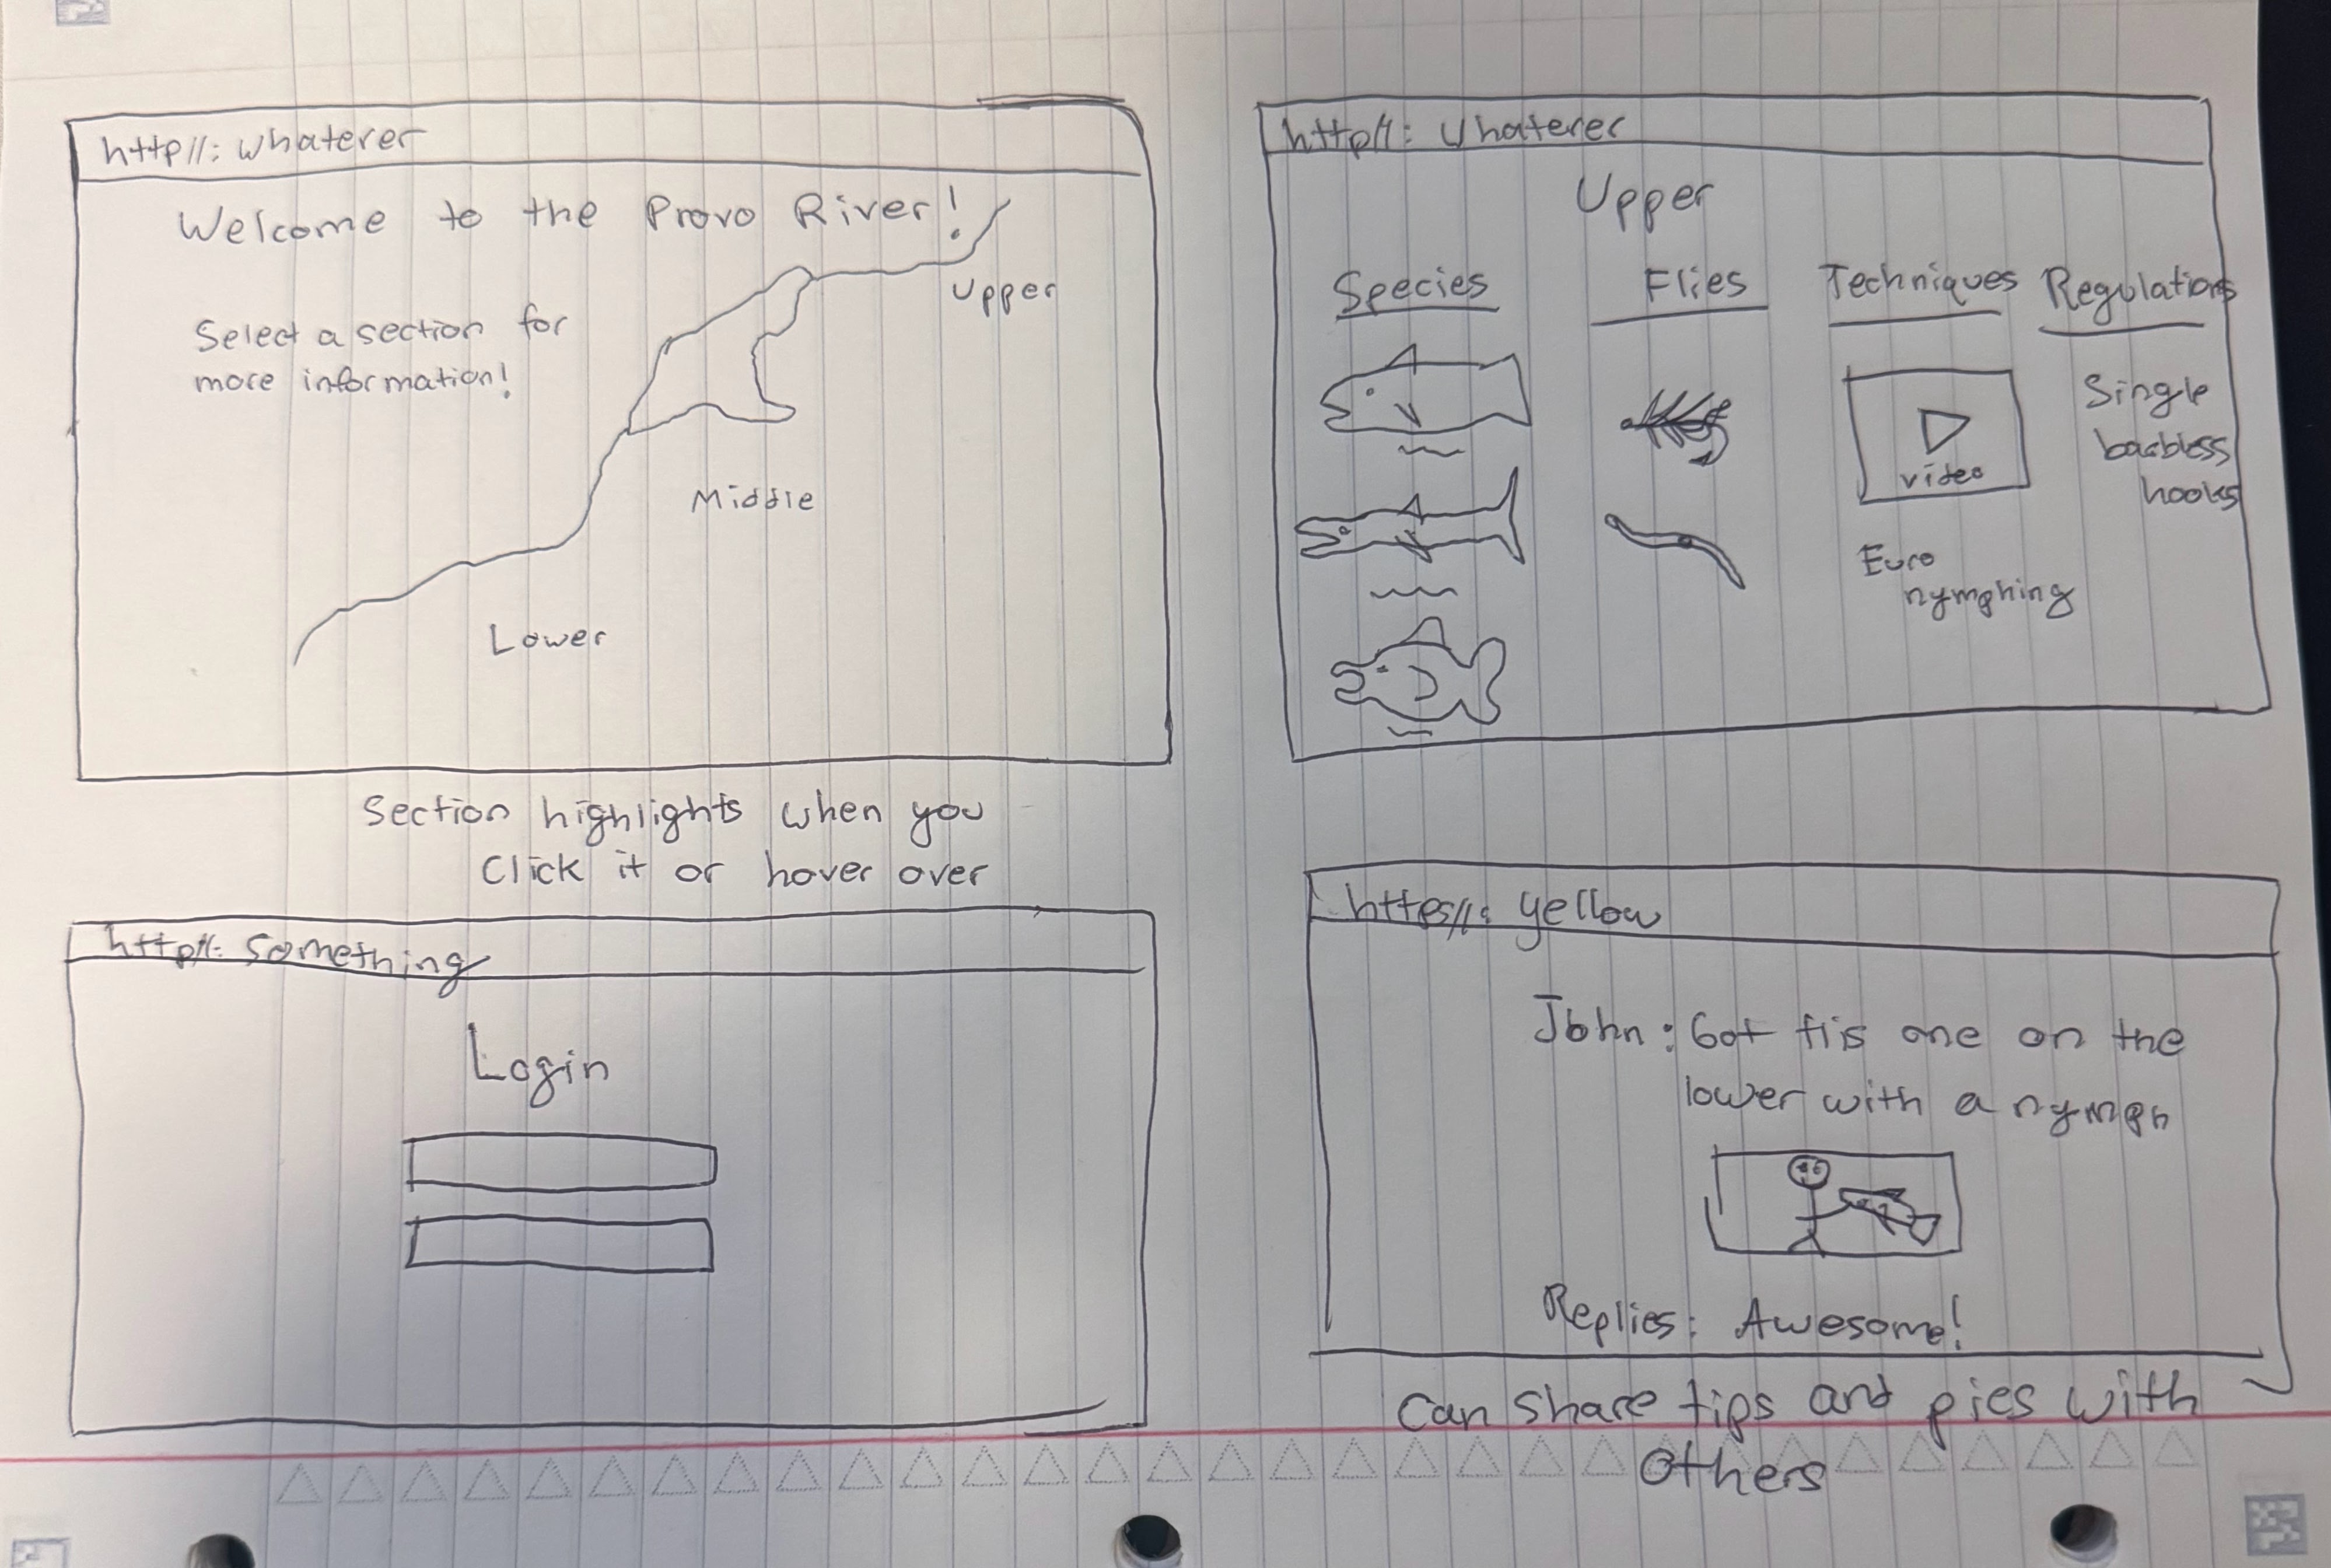 http//: whatever
Welcome to the Provo River!
Select a section for
more information!
Upper
Middle
Lower
Section highlights when you
Click it or hover over
http//: whatever
Upper
Species
Flies
Techniques
Regulations
video
Euro
nymphing
Single
barbless
hooks
http//: something
Login
https//: yellow
John: Got tis one on the
lower with a nymph
Replies: Awesome!
Can share tips and pics with
others